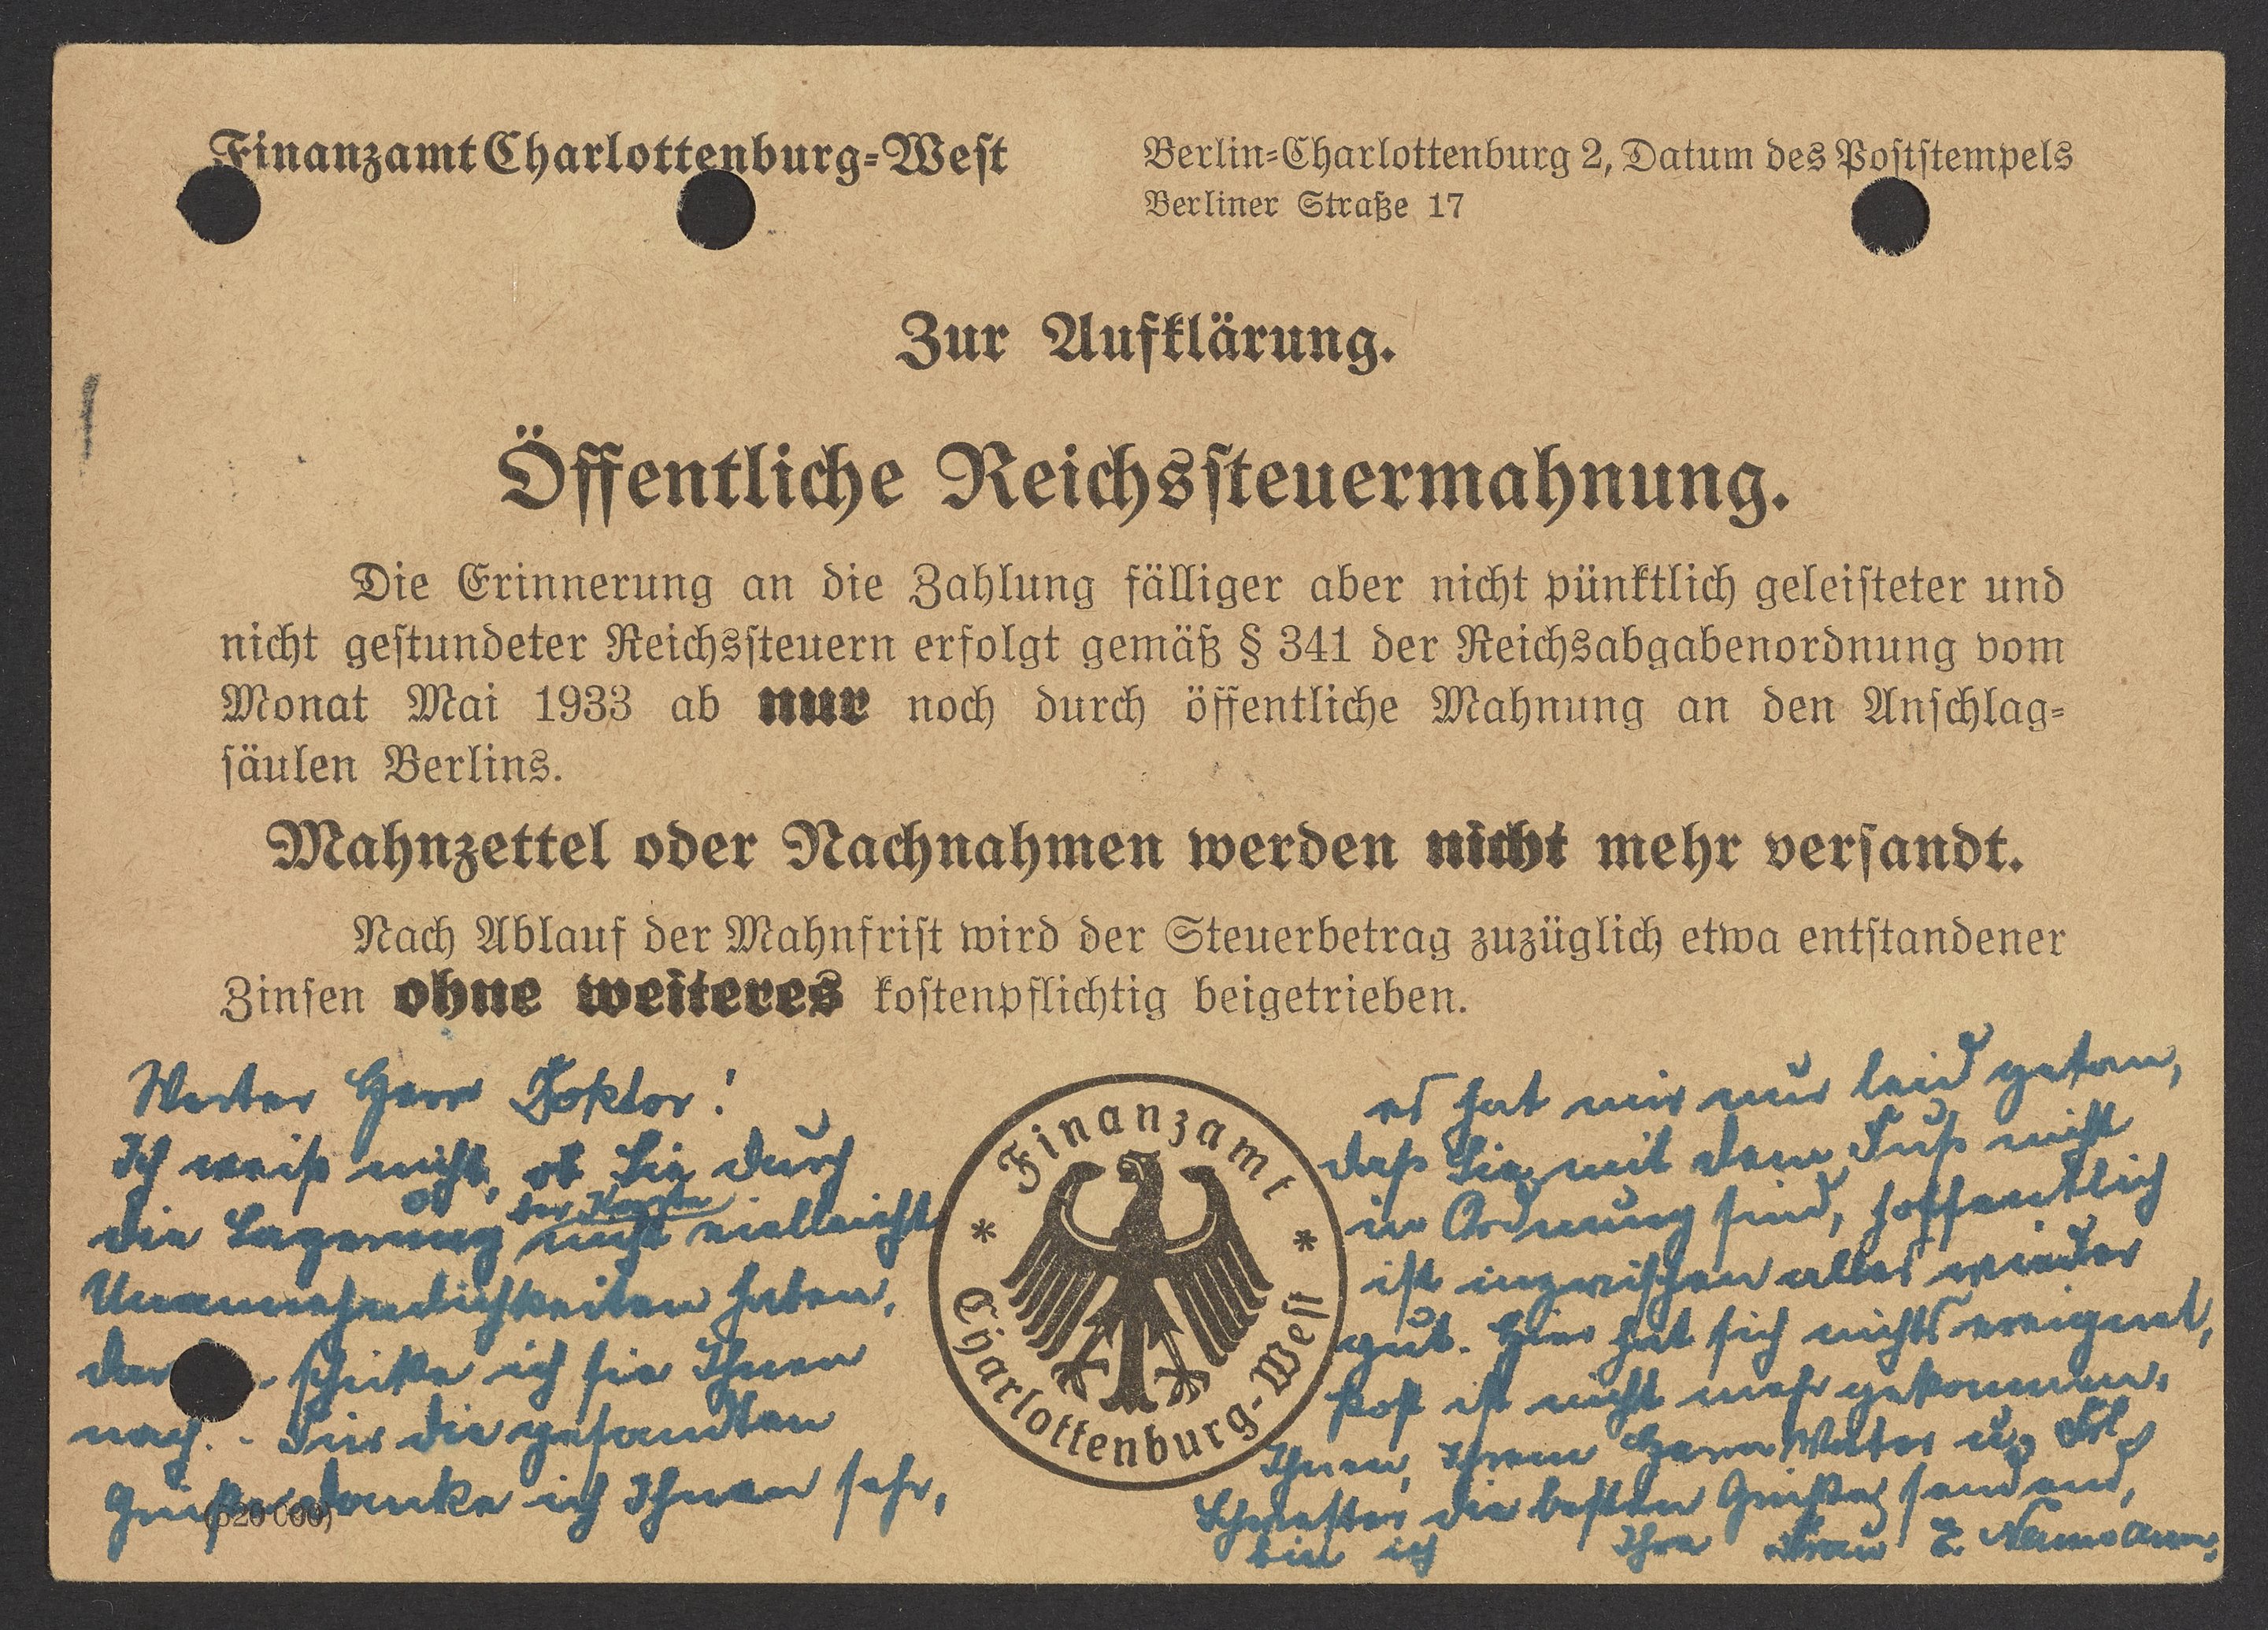 Finanzamt Charlottenburg-West
Berlin-Charlottenburg 2, Datum des Poststempels
Berliner Straße 17
Zur Aufklärung.
Öffentliche Reichssteuermahnung.
Die Erinnerung an die Zahlung fälliger aber nicht pünktlich geleisteter und
nicht gestundeter Reichssteuern erfolgt gemäß § 341 der Reichsabgabenordnung vom
Monat Mai 1933 ab nur noch durch öffentliche Mahnung an den Anschlag-
säulen Berlins.
Mahnzettel oder Nachnahmen werden nicht mehr versandt.
Nach Ablauf der Mahnfrist wird der Steuerbetrag zuzüglich etwa entstandener
Zinsen ohne weiteres kostenpflichtig beigetrieben.
Werter Herr Doktor!
Ich weiß nicht, ob Sie durch
der Karte
die Lagerung nicht vielleicht
Unannehmlichkeiten haben,
schicke ich sie Ihnen
nach. - Für die gesandten
Grüße danke ich Ihnen sehr,
es hat mir nur leid getan,
daß Sie mit dem Fuß nicht
in Ordnung sind, hoffentlich
ist inzwischen alles wieder
gut. Hier hat sich nichts ereignet,
Post ist nicht mehr gekommen.
Ihnen, Ihrem Herrn Vater u. Frl.
Schwester die besten Grüße sendend,
bin ich Ihre Frau E. Neumann.
Finanzamt
* *
Charlottenburg-West
(320 000)